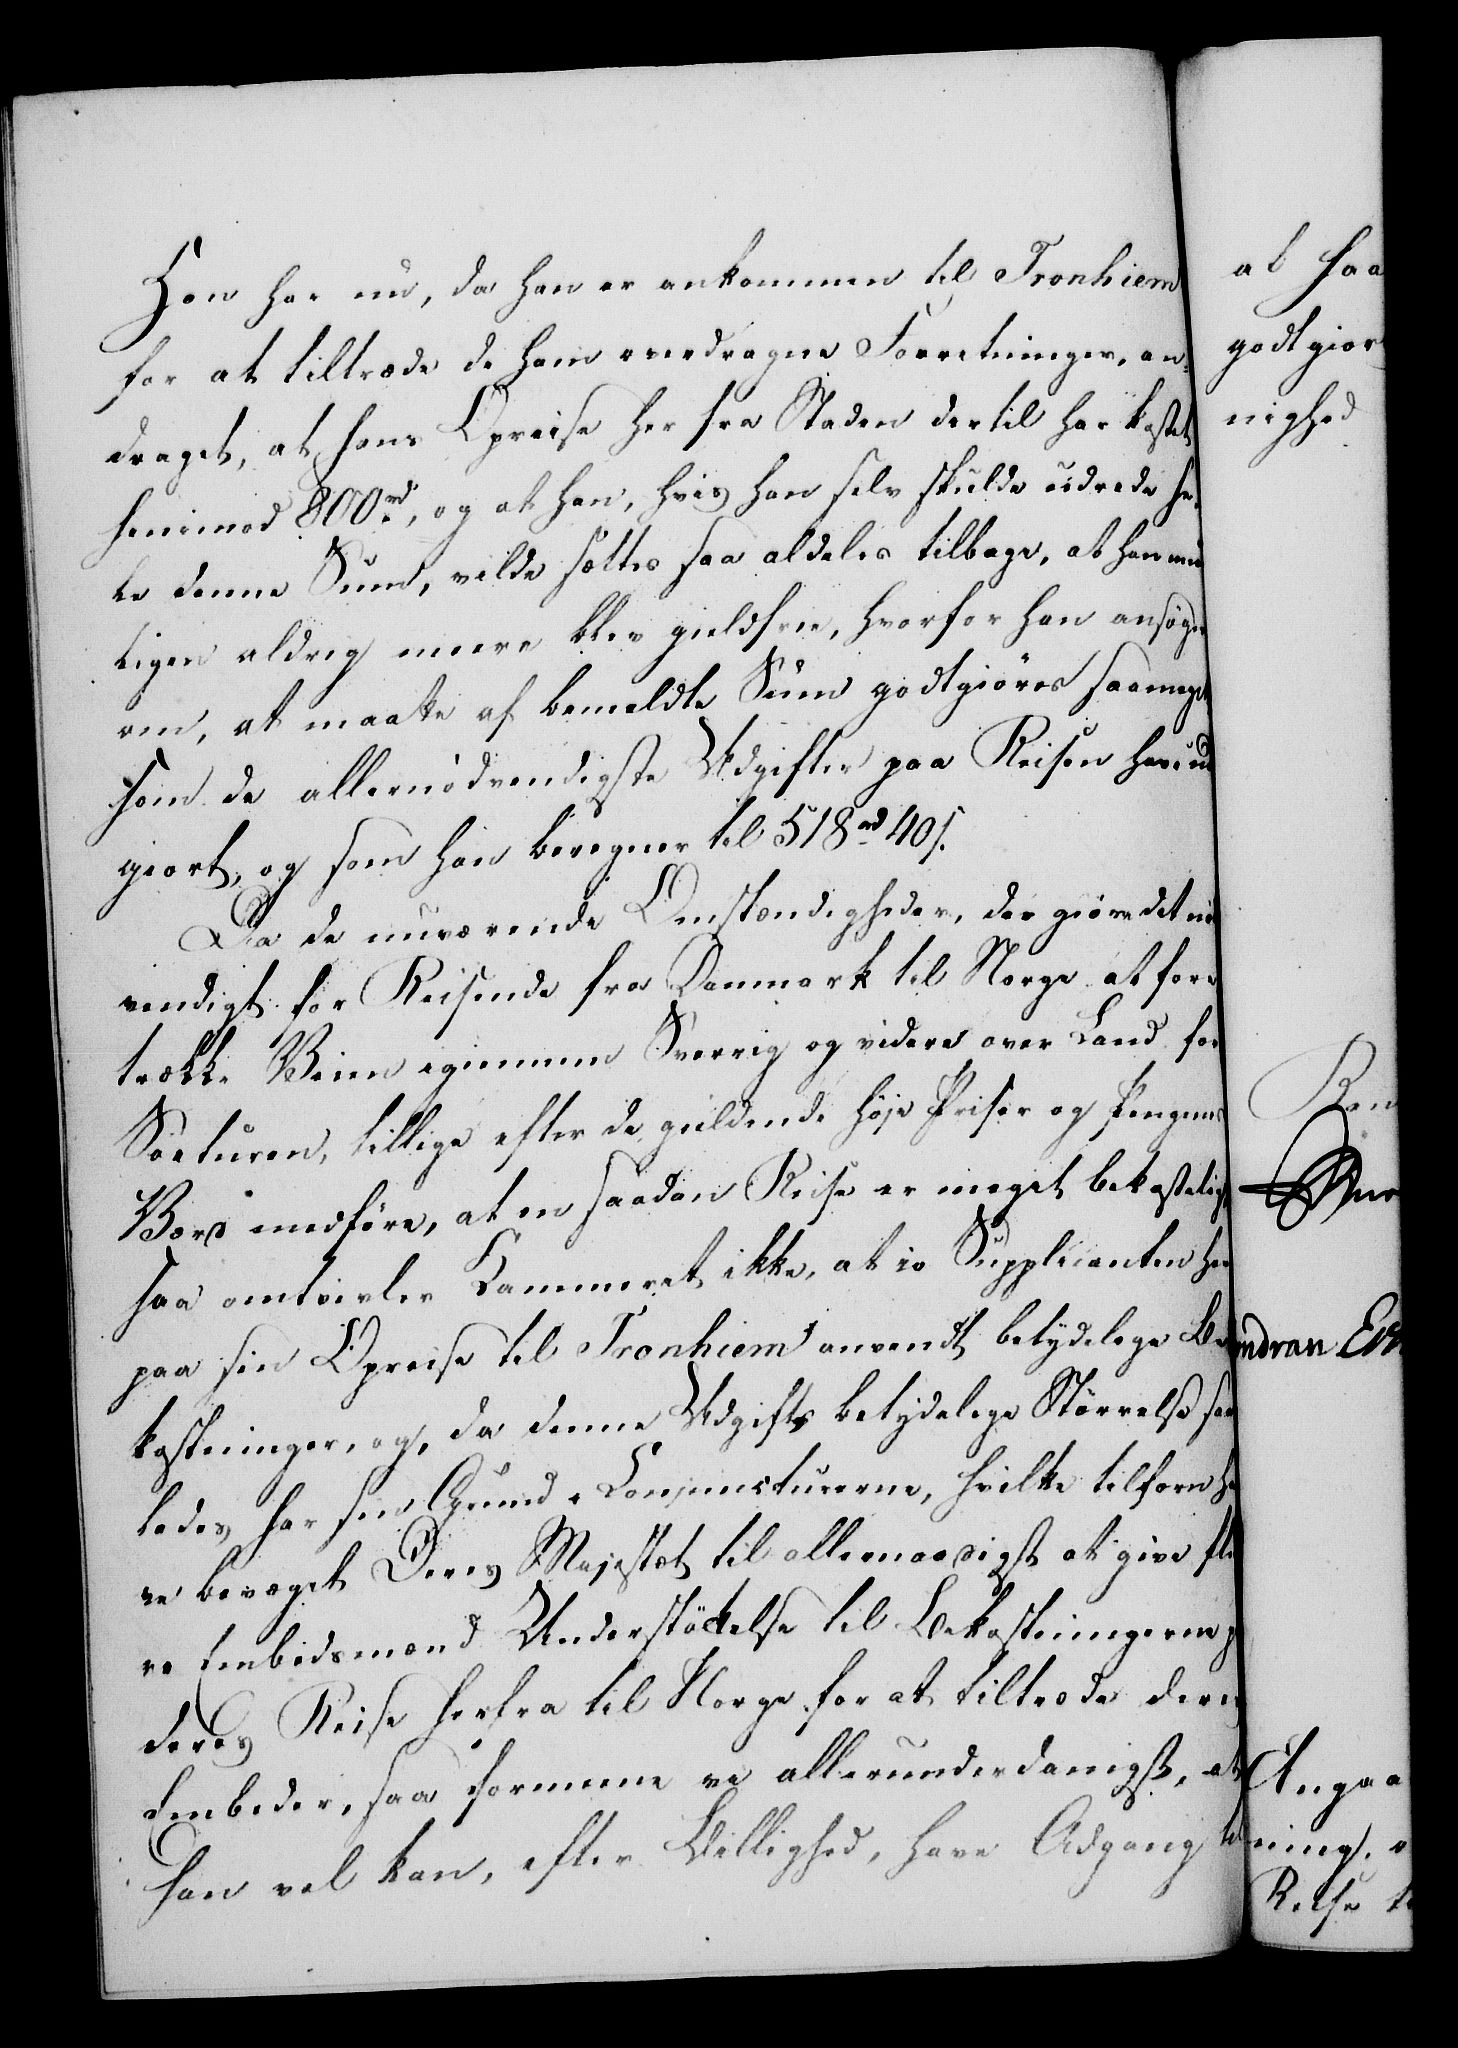 Han har nu, da han er ankommen til Tronhiem
for at tiltræde de ham overdragne Forretninger, an-
draget, at hans Opreise her fra Staden dertil har kostet
henimod 800 rd, og at han, hvis han selv skulde udrede he-
le denne Sum, vilde sættes saa aldeles tilbage, at han
ligen aldrig meere blev gieldfrie, hvorfor han ansøger
om, at maatte af bemeldte Sum godtgiøres saameget
som de allernødvendigste Udgifter paa Reisen have ud
giort, og som han beregner til 518 rd 40 s.
Da de nuværende Omstændigheder, der giøre det nød
vendigt for Reisende fra Danmark til Norge at fore
trække Veien igiennem Sverrig og videre over Land for
Søeturen, tillige efter de gieldende høje Priser og Pengenes
Værd medføre, at en saadan Reise er meget bekostelig,
saa omtvivler Kammeret ikke, at jo Supplicanten har
paa sin Opreise til Tronhiem anvendt betydelige Be
kostninger, og, da denne Udgifts betydelige Størrelse saa
ledes har sin Grund i Conjuncturerne, hvilke tilforn ha
ve bevæget Deres Majestæt til allernaadigst at give fle
re Embedsmænd Understøttelse til Bekostningerne p
deres Reise herfra til Norge for at tiltræde deres
Embeder, saa formene vi allerunderdanigst, at
han vel kan, efter Billighed, have Adgang til
at saa
godtgiør
nighed
Ren
Angaa
ning,
Reise